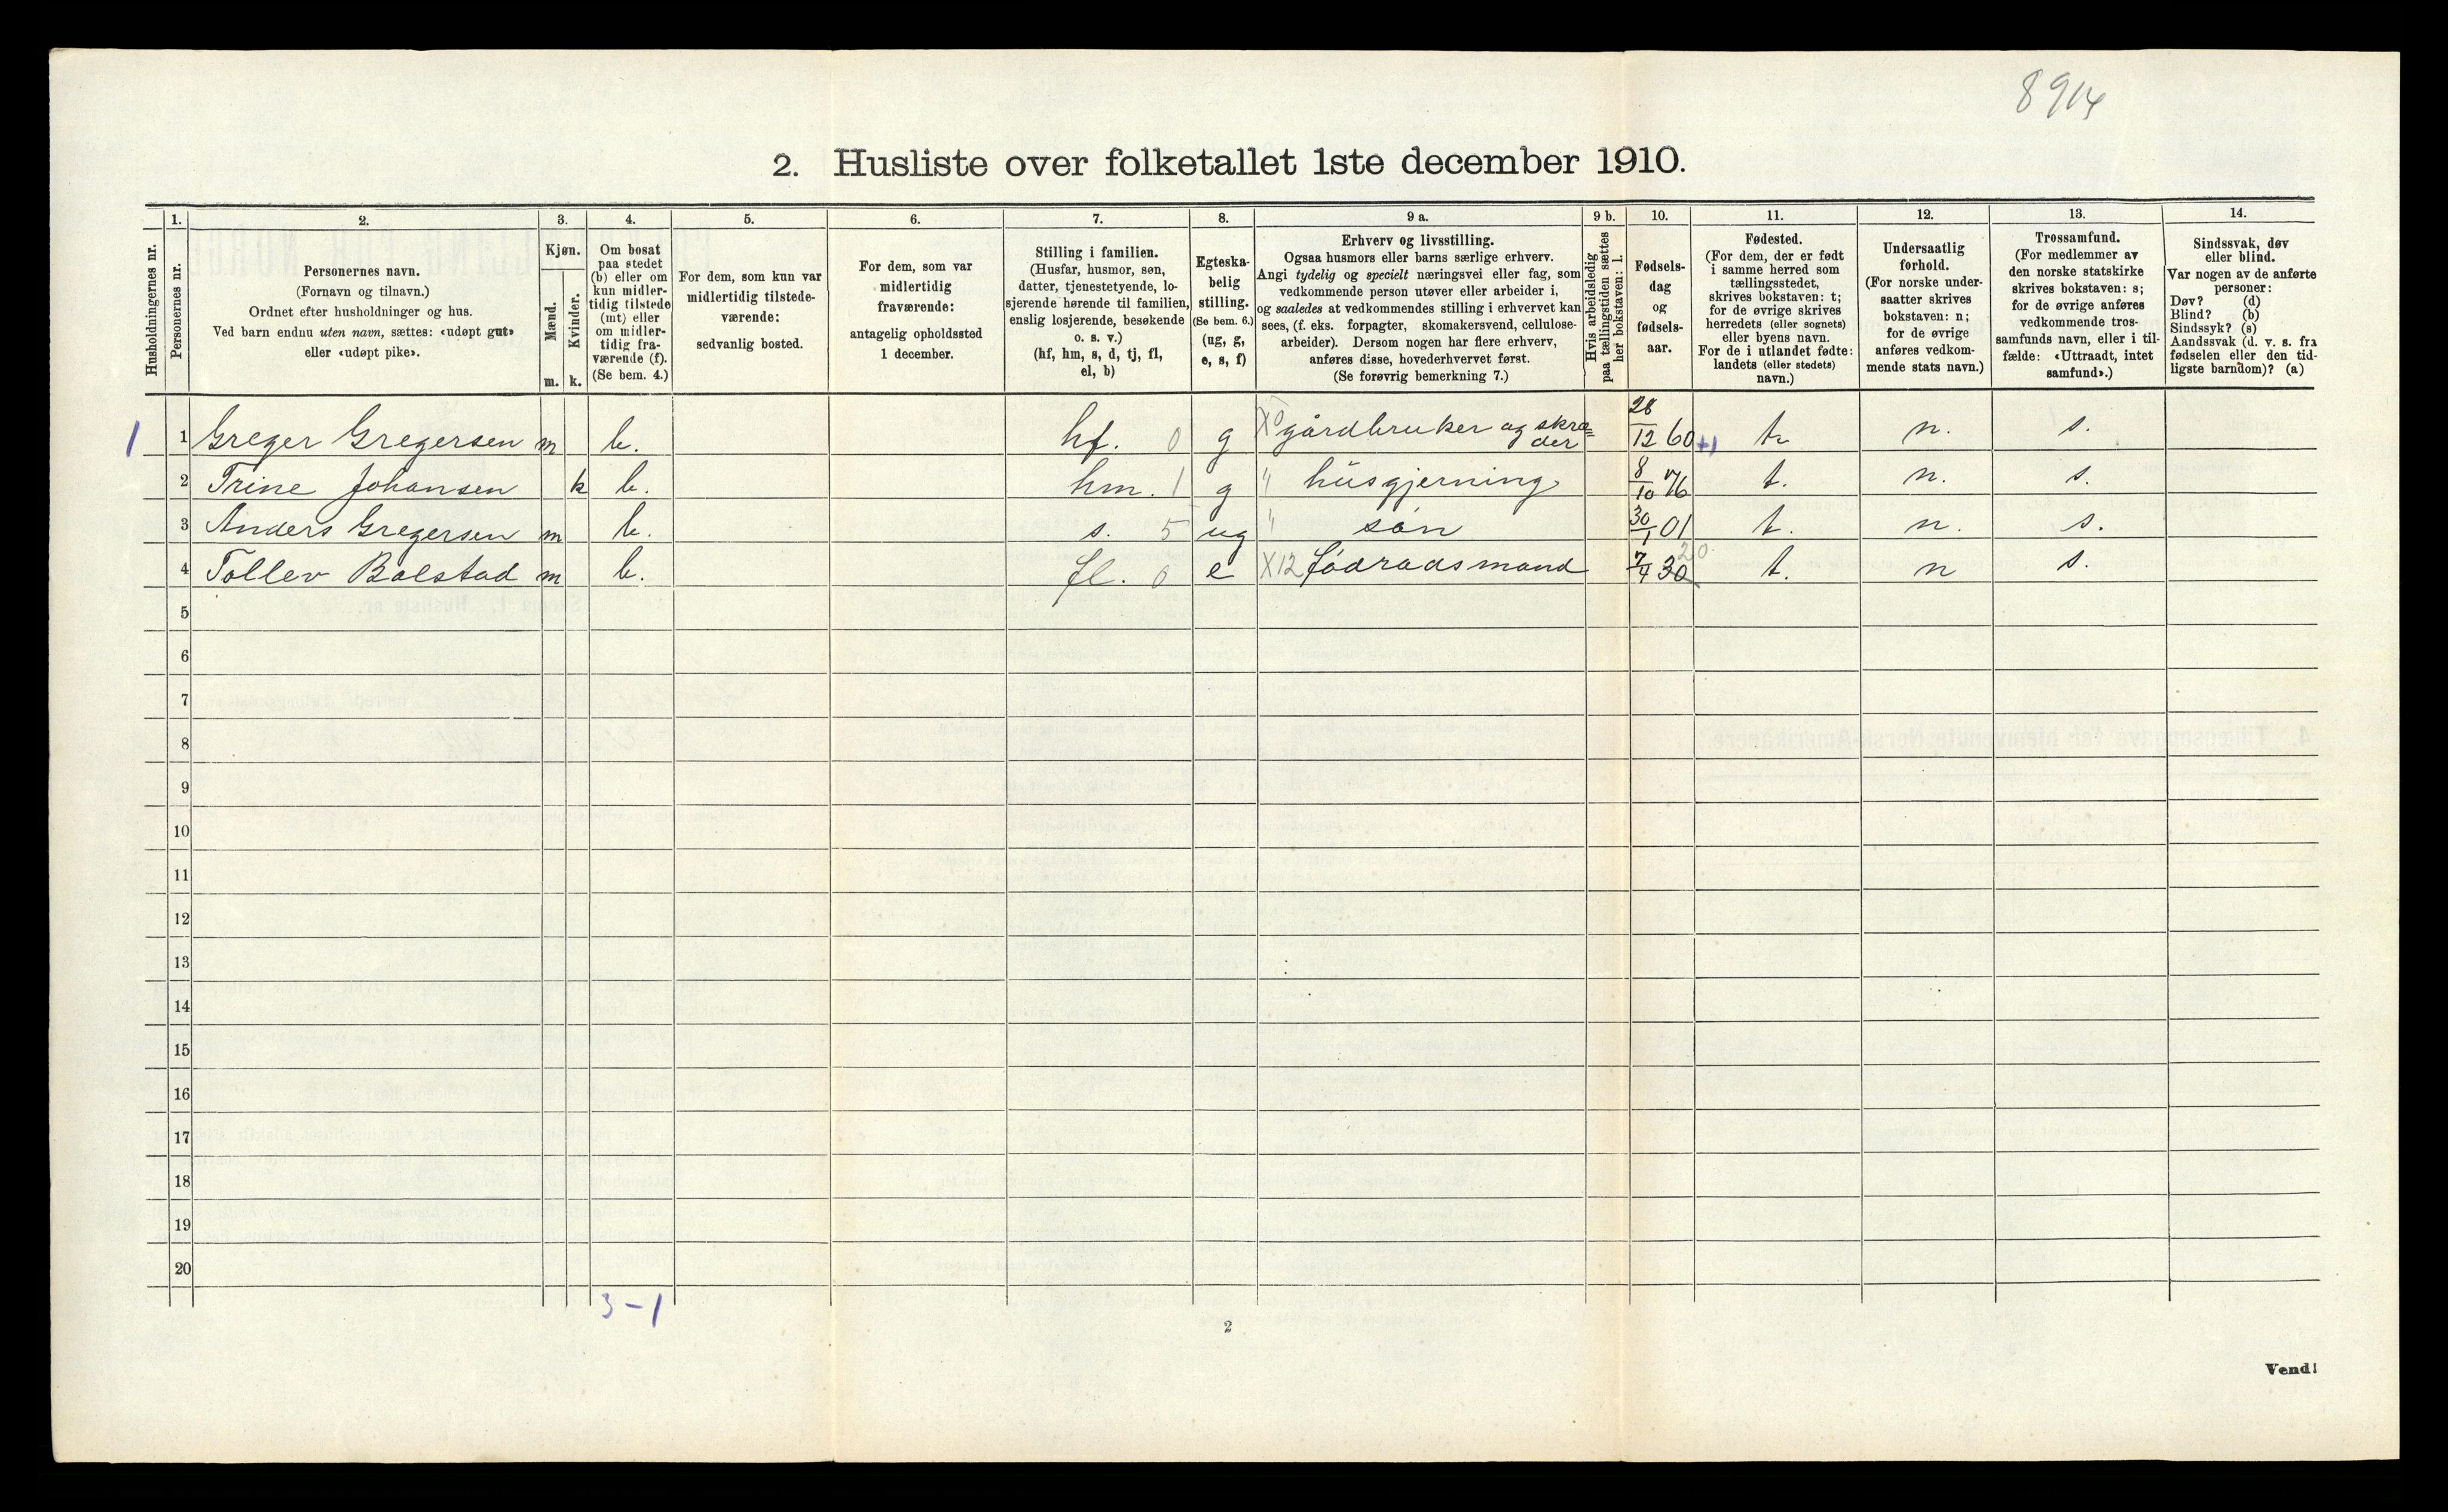 8914
2. Husliste over folketallet 1ste december 1910.
Husholdningernes nr.
1.
Personernes nr.
2.
Personernes navn.
(Fornavn og tilnavn.)
Ordnet efter husholdninger og hus.
Ved barn endnu uten navn, sættes: «udøpt gut»
eller «udøpt pike».
3.
Kjøn.
Mænd.
Kvinder.
m. k.
4.
Om bosat
paa stedet
(b) eller om
kun midler-
tidig tilstede
(mt) eller
om midler-
tidig fra-
værende (f).
(Se bem. 4.)
5.
For dem, som kun var
midlertidig tilstede-
værende:
sedvanlig bosted.
6.
For dem, som var
midlertidig
fraværende:
antagelig opholdssted
1 december.
7.
Stilling i familien.
(Husfar, husmor, søn,
datter, tjenestetyende, lo-
sjerende hørende til familien,
enslig losjerende, besøkende
o. s. v.)
(hf, hm, s, d, tj, fl,
el, b)
8.
Egteska-
belig
stilling.
(Se bem. 6.)
(ug, g,
e, s, f)
9 a.
Erhverv og livsstilling.
Ogsaa husmors eller barns særlige erhverv.
Angi tydelig og specielt næringsvei eller fag, som
vedkommende person utøver eller arbeider i,
og saaledes at vedkommendes stilling i erhvervet kan
sees, (f. eks. forpagter, skomakersvend, cellulose-
arbeider). Dersom nogen har flere erhverv,
anføres disse, hovederhvervet først.
(Se forøvrig bemerkning 7.)
9 b.
Hvis arbeidsledig
paa tællingstiden sættes
her bokstaven: l.
10.
Fødsels-
dag
og
fødsels-
aar.
11.
Fødested.
(For dem, der er født
i samme herred som
tællingsstedet,
skrives bokstaven: t;
for de øvrige skrives
herredets (eller sognets)
eller byens navn.
For de i utlandet fødte:
landets (eller stedets)
navn.)
12.
Undersaatlig
forhold.
(For norske under-
saatter skrives
bokstaven: n;
for de øvrige
anføres vedkom-
mende stats navn.)
13.
Trossamfund.
(For medlemmer av
den norske statskirke
skrives bokstaven: s;
for de øvrige anføres
vedkommende tros-
samfunds navn, eller i til-
fælde: «Uttraadt, intet
samfund».)
14.
Sindssvak, døv
eller blind.
Var nogen av de anførte
personer:
Døv? (d)
Blind? (b)
Sindssyk? (s)
Aandssvak (d. v. s. fra
fødselen eller den tid-
ligste barndom)? (a)
1 1 Greger Gregersen m b. hf. 0 g X0 gårdbruker og skræ=der 28/12 60 +1 t n. s.
2 Trine Johansen k b. hm. 1 g " húsgjerning 8/10 76 t. n. s.
3 Anders Gregersen m b. s. 5 ug " søn 30/1 01 t. n. s.
4 Tollev Bolstad m b. fl. 0 e X12 fødradsmand 7/4 30 20 t. n s.
5
6
7
8
9
10
11
12
13
14
15
16
17
18
19
20
3-1
2
Vend!